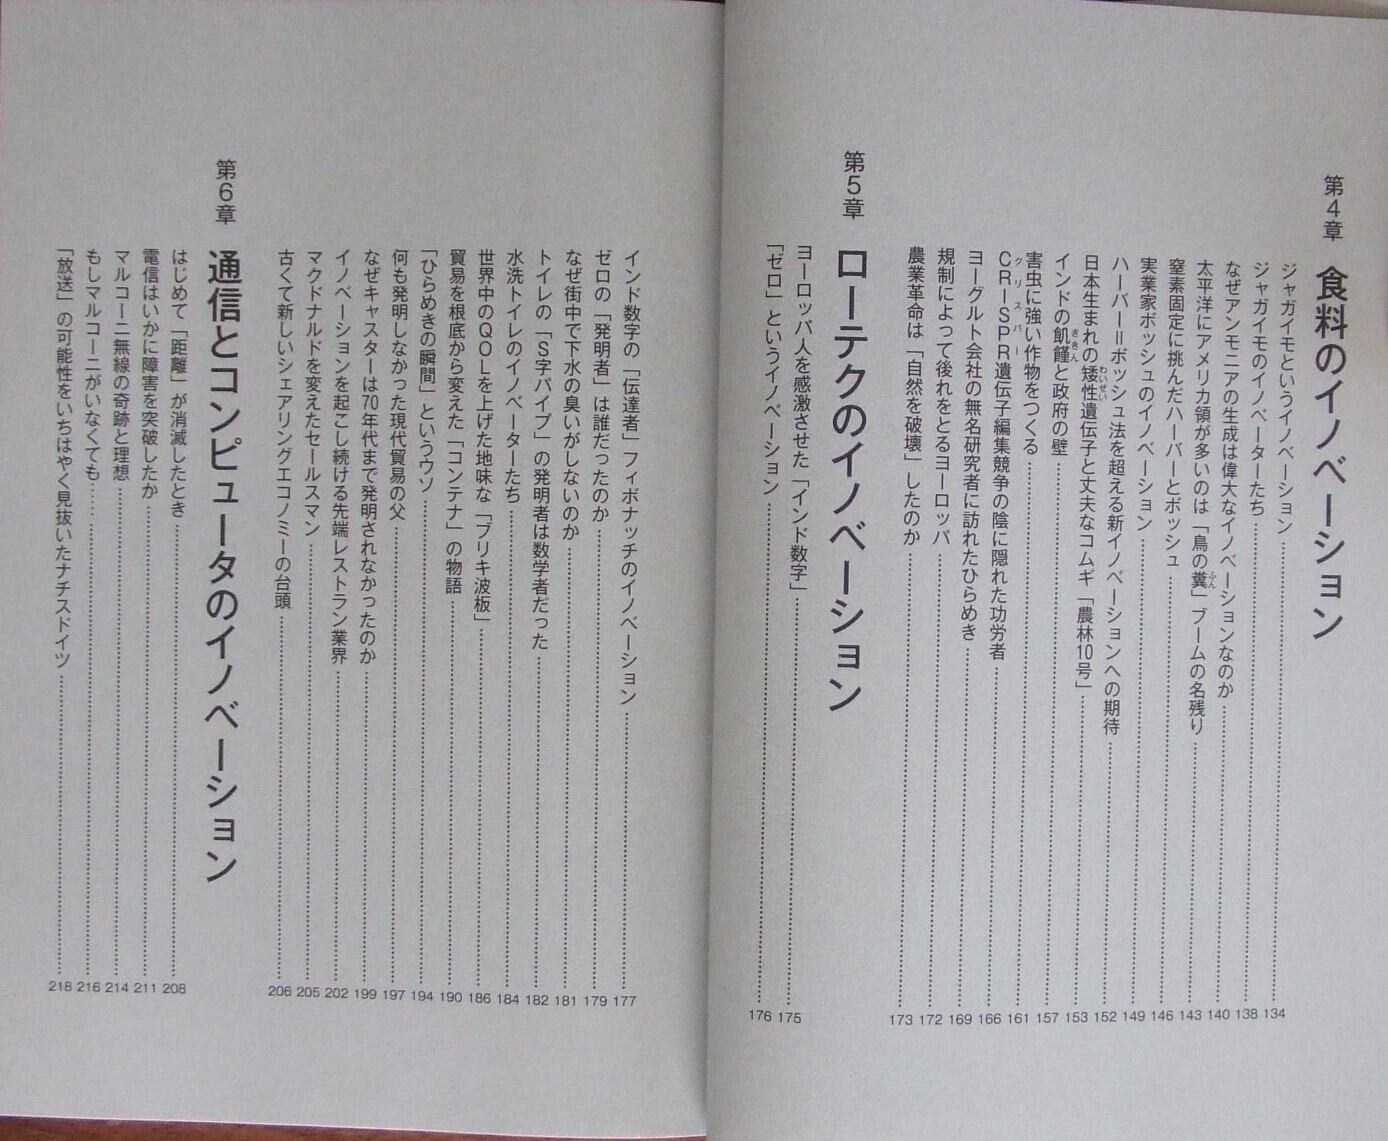 第4章 食料のイノベーション
ジャガイモというイノベーション 134
ジャガイモのイノベーターたち 138
なぜアンモニアの生成は偉大なイノベーションなのか 140
太平洋にアメリカ領が多いのは「鳥の糞」ブームの名残り 143
窒素固定に挑んだハーバーとボッシュ 146
実業家ボッシュのイノベーション 149
ハーバー=ボッシュ法を超える新イノベーションへの期待 152
日本生まれの矮性遺伝子と丈夫なコムギ「農林10号」 153
インドの飢饉と政府の壁 157
害虫に強い作物をつくる 161
CRISPR遺伝子編集競争の陰に隠れた功労者 166
ヨーグルト会社の無名研究者に訪れたひらめき 169
規制によって後れをとるヨーロッパ 172
農業革命は「自然を破壊」したのか 173
第5章 ローテクのイノベーション
ヨーロッパ人を感激させた「インド数字」 175
「ゼロ」というイノベーション 176
インド数字の「伝達者」フィボナッチのイノベーション 177
ゼロの「発明者」は誰だったのか 179
なぜ街中で下水の臭いがしないのか 181
トイレの「S字パイプ」の発明者は数学者だった 182
水洗トイレのイノベーターたち 184
世界中のQOLを上げた地味な「ブリキ波板」 186
貿易を根底から変えた「コンテナ」の物語 190
「ひらめきの瞬間」というウソ 194
何も発明しなかった現代貿易の父 197
なぜキャスターは70年代まで発明されなかったのか 199
イノベーションを起こし続ける先端レストラン業界 202
マクドナルドを変えたセールスマン 205
古くて新しいシェアリングエコノミーの台頭 206
第6章 通信とコンピュータのイノベーション
はじめて「距離」が消滅したとき 208
電信はいかに障害を突破したか 211
マルコーニ無線の奇跡と理想 214
もしマルコーニがいなくても…… 216
「放送」の可能性をいちはやく見抜いたナチスドイツ 218